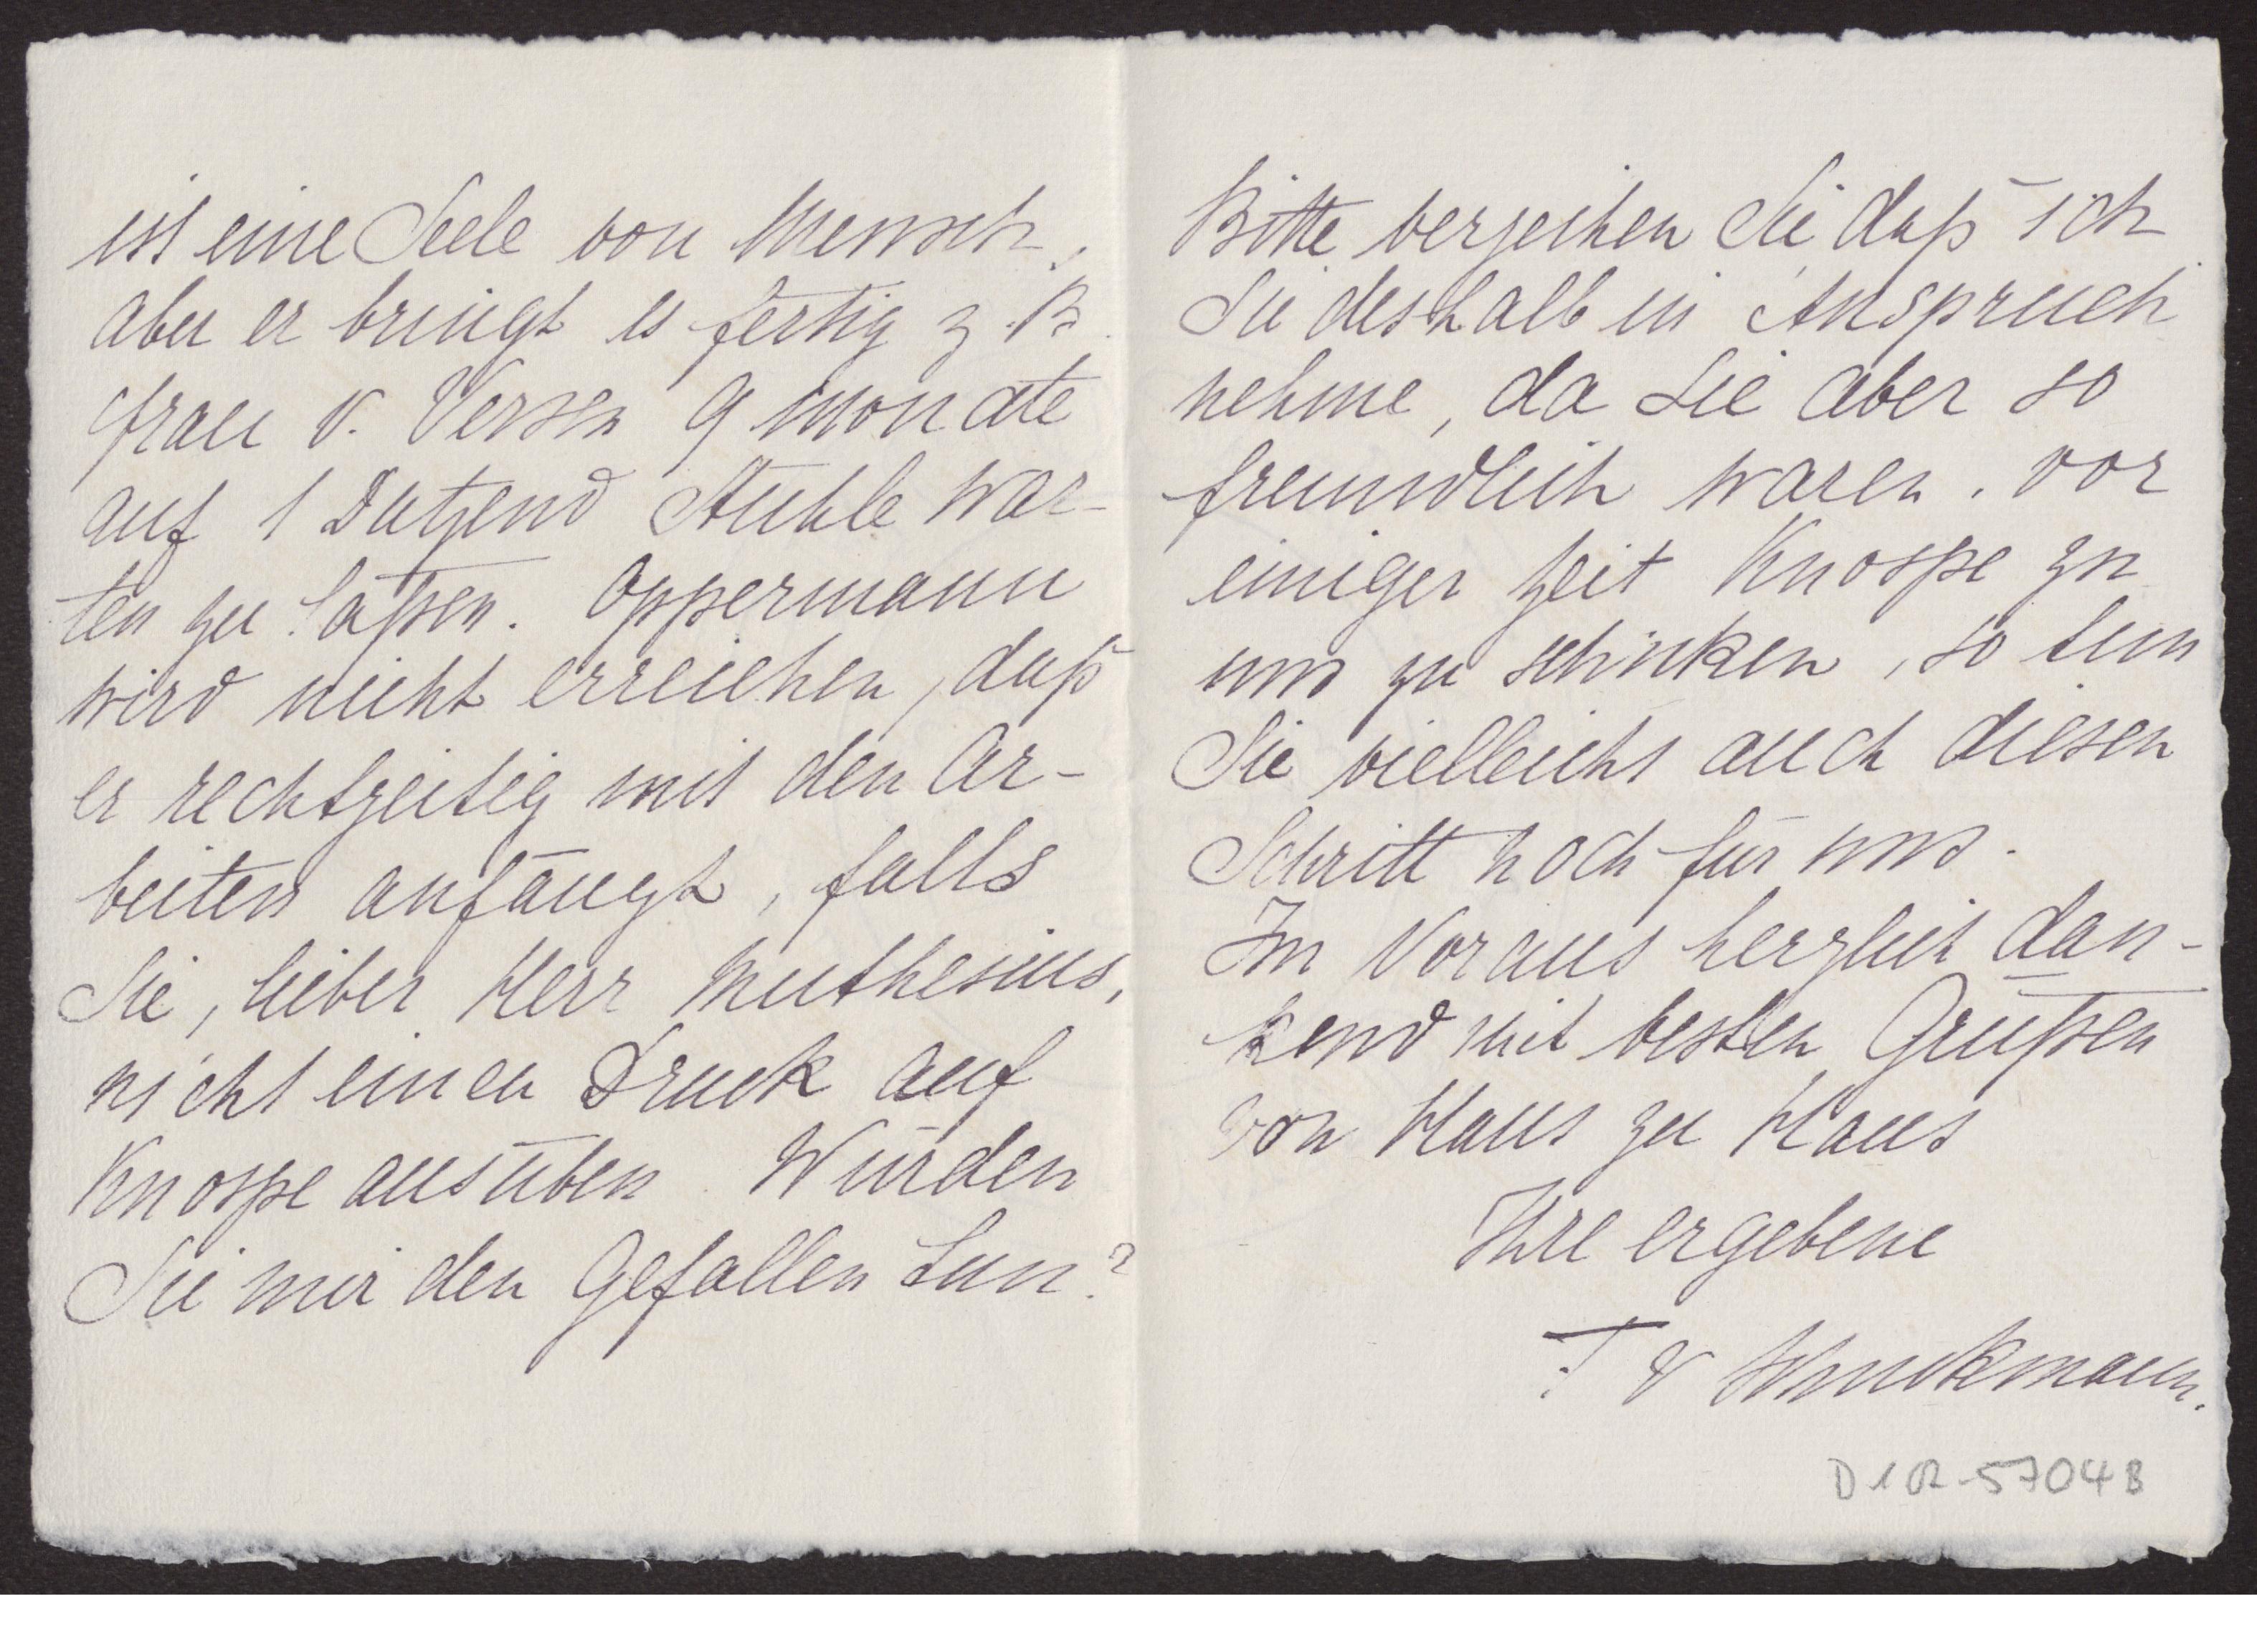 ist eine Seele von Mensch,
aber er bringt es fertig z. B.
Frau v. Versen 9 Monate
auf 1 Dutzend Stühle war-
ten zu laßen. Oppermann
wird nicht erreichen, daß
er rechtzeitig mit den Ar-
beiten anfängt, falls
Sie, lieber Herr Muthesius,
nicht einen Druck auf
Knospe ausüben. Würden
Sie mir den Gefallen tun?
Bitte verzeihen Sie daß ich
Sie deshalb in Anspruch
nehme, da Sie aber so
freundlich waren, vor
einiger Zeit Knospe zu
uns zu schicken, so tun
Sie vielleicht auch diesen
Schritt noch für uns.
Im Voraus herzlich dan-
kend mit besten Grüßen
von Haus zu Haus
Ihre ergebene
T v Schuckmann.
D 102-5704 B